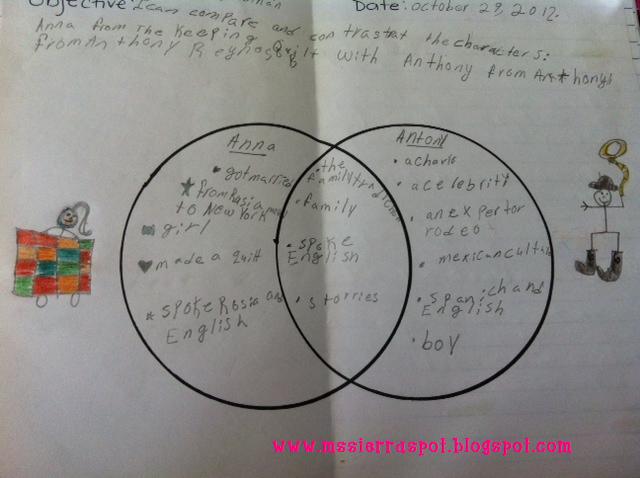 Objective: I can compare and
Date: october 29, 2012.
contrastat the characters:
Anna from The Keeping Quilt with Anthony from Anthonys
from Anthony Reynoso
Anna
• got married
from Rosia
to New York
girl
made a Quilt
* spoke Rosia and
English
• the
family traditions
• family
• spoke
English
• storries
Antony
• acharo
• a celebriti
• an expertor
rodeo
• mexican cultur
• spanich and
English
• boy
www.mssierraspot.blogspot.com